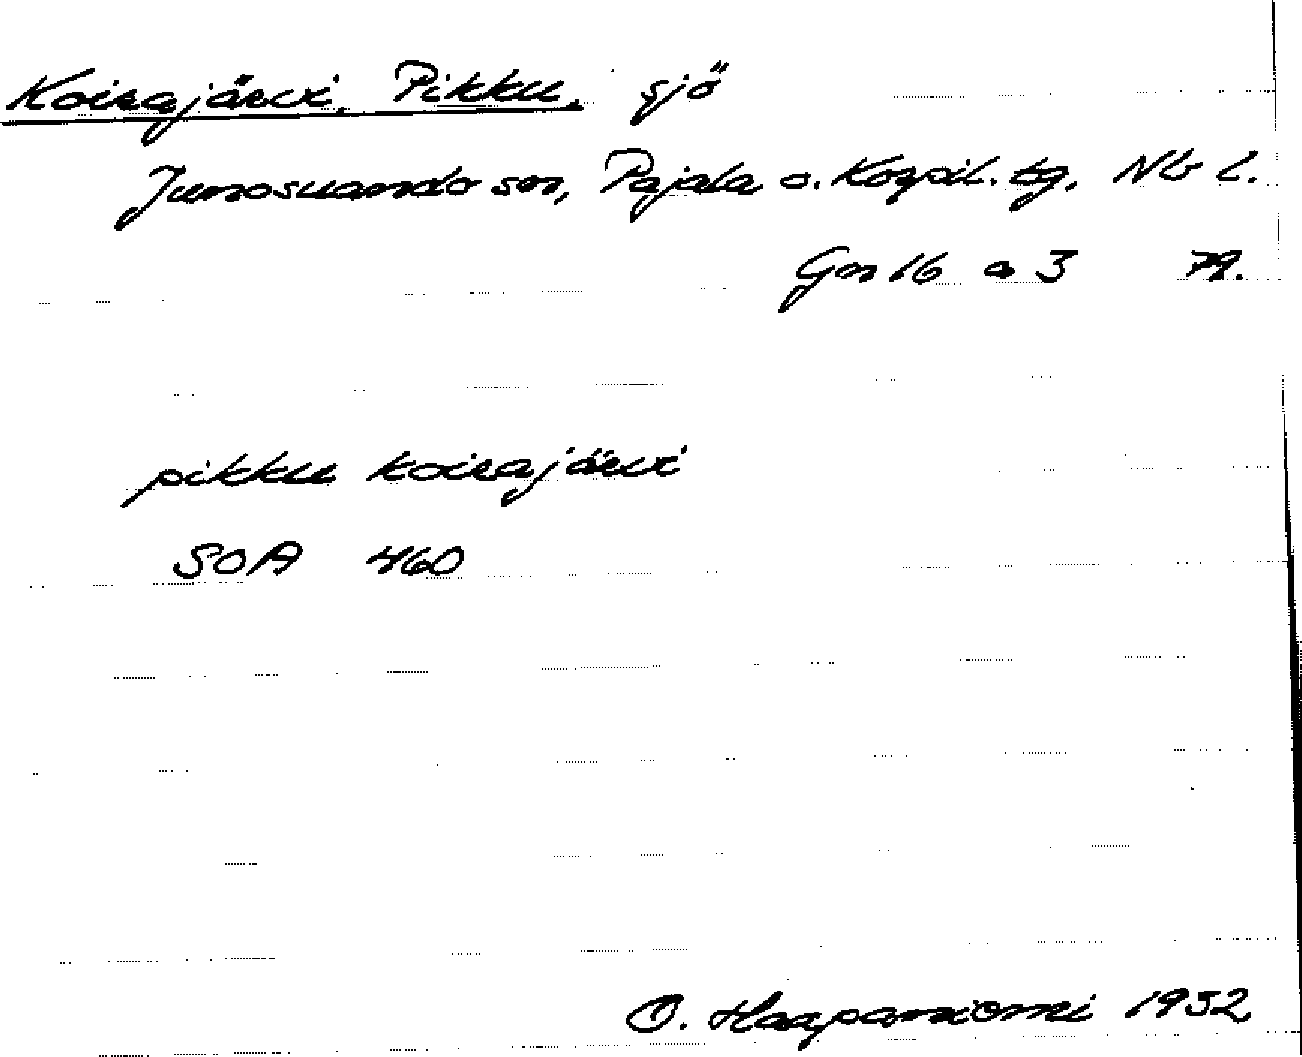 Koirajärvi, Pikku, sjö
Junosuando sn, Pajala o. Korpil. tg, Nb l.
Gn 16 a 3 79.
pikku koirajärvi
SOA 460
O. Haapaniemi 1952